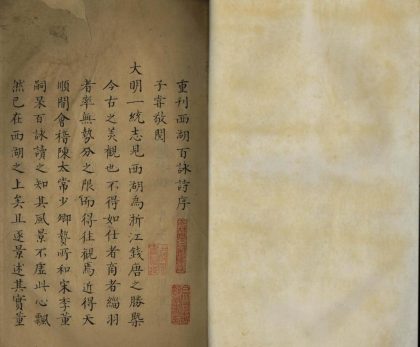 重刊西湖百詠詩序
予嘗敬閱
大明一統志見西湖為浙江錢唐之勝槩
今古之美觀也不得如仕者商者緇羽
者率無勢分之限而得往觀焉近得天
順間會稽陳太常少卿贄所和宋季董
嗣杲百詠讀之知其風景不虛此心飄
然已在西湖之上矣且逐景述其實董